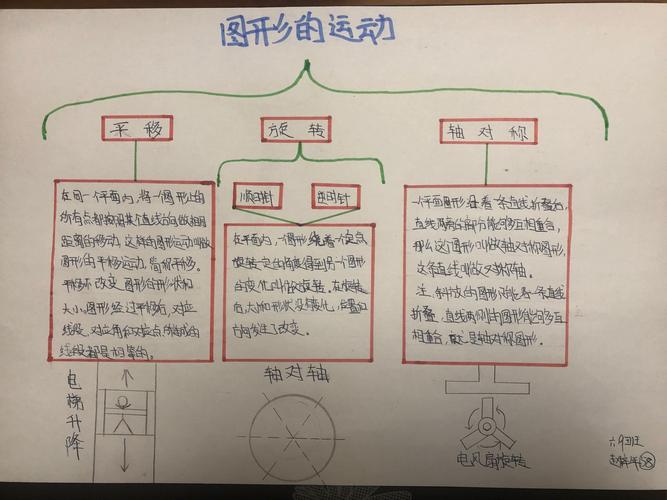 图形的运动
平移
旋转
轴对称
顺时针
逆时针
在同一个平面内,将一个图形上的
所有点都按照某个直线方向做相同
距离的移动,这样的图形运动叫做
图形的平移运动,简称平移。
平移不改变图形的形状和
大小。图形经过平移后,对应
线段,对应角和对应点所连成的
线段都是相等的。
在平面内,一个图形绕着一定点
旋转一定的角度得到另一个图形
的变化叫做旋转。在旋转
后,大小和形状没变化,位置和
方向发生了改变。
一个平面图形沿着一条直线折叠后,
直线两旁的部分能够互相重合,
那么这个图形叫做轴对称图形,
这条直线叫做对称轴。
注:斜放的图形只能沿着一条直线
折叠,直线两侧的图形能够互
相重合,就是轴对称图形。
电梯升降
轴对轴
电风扇旋转
六
班